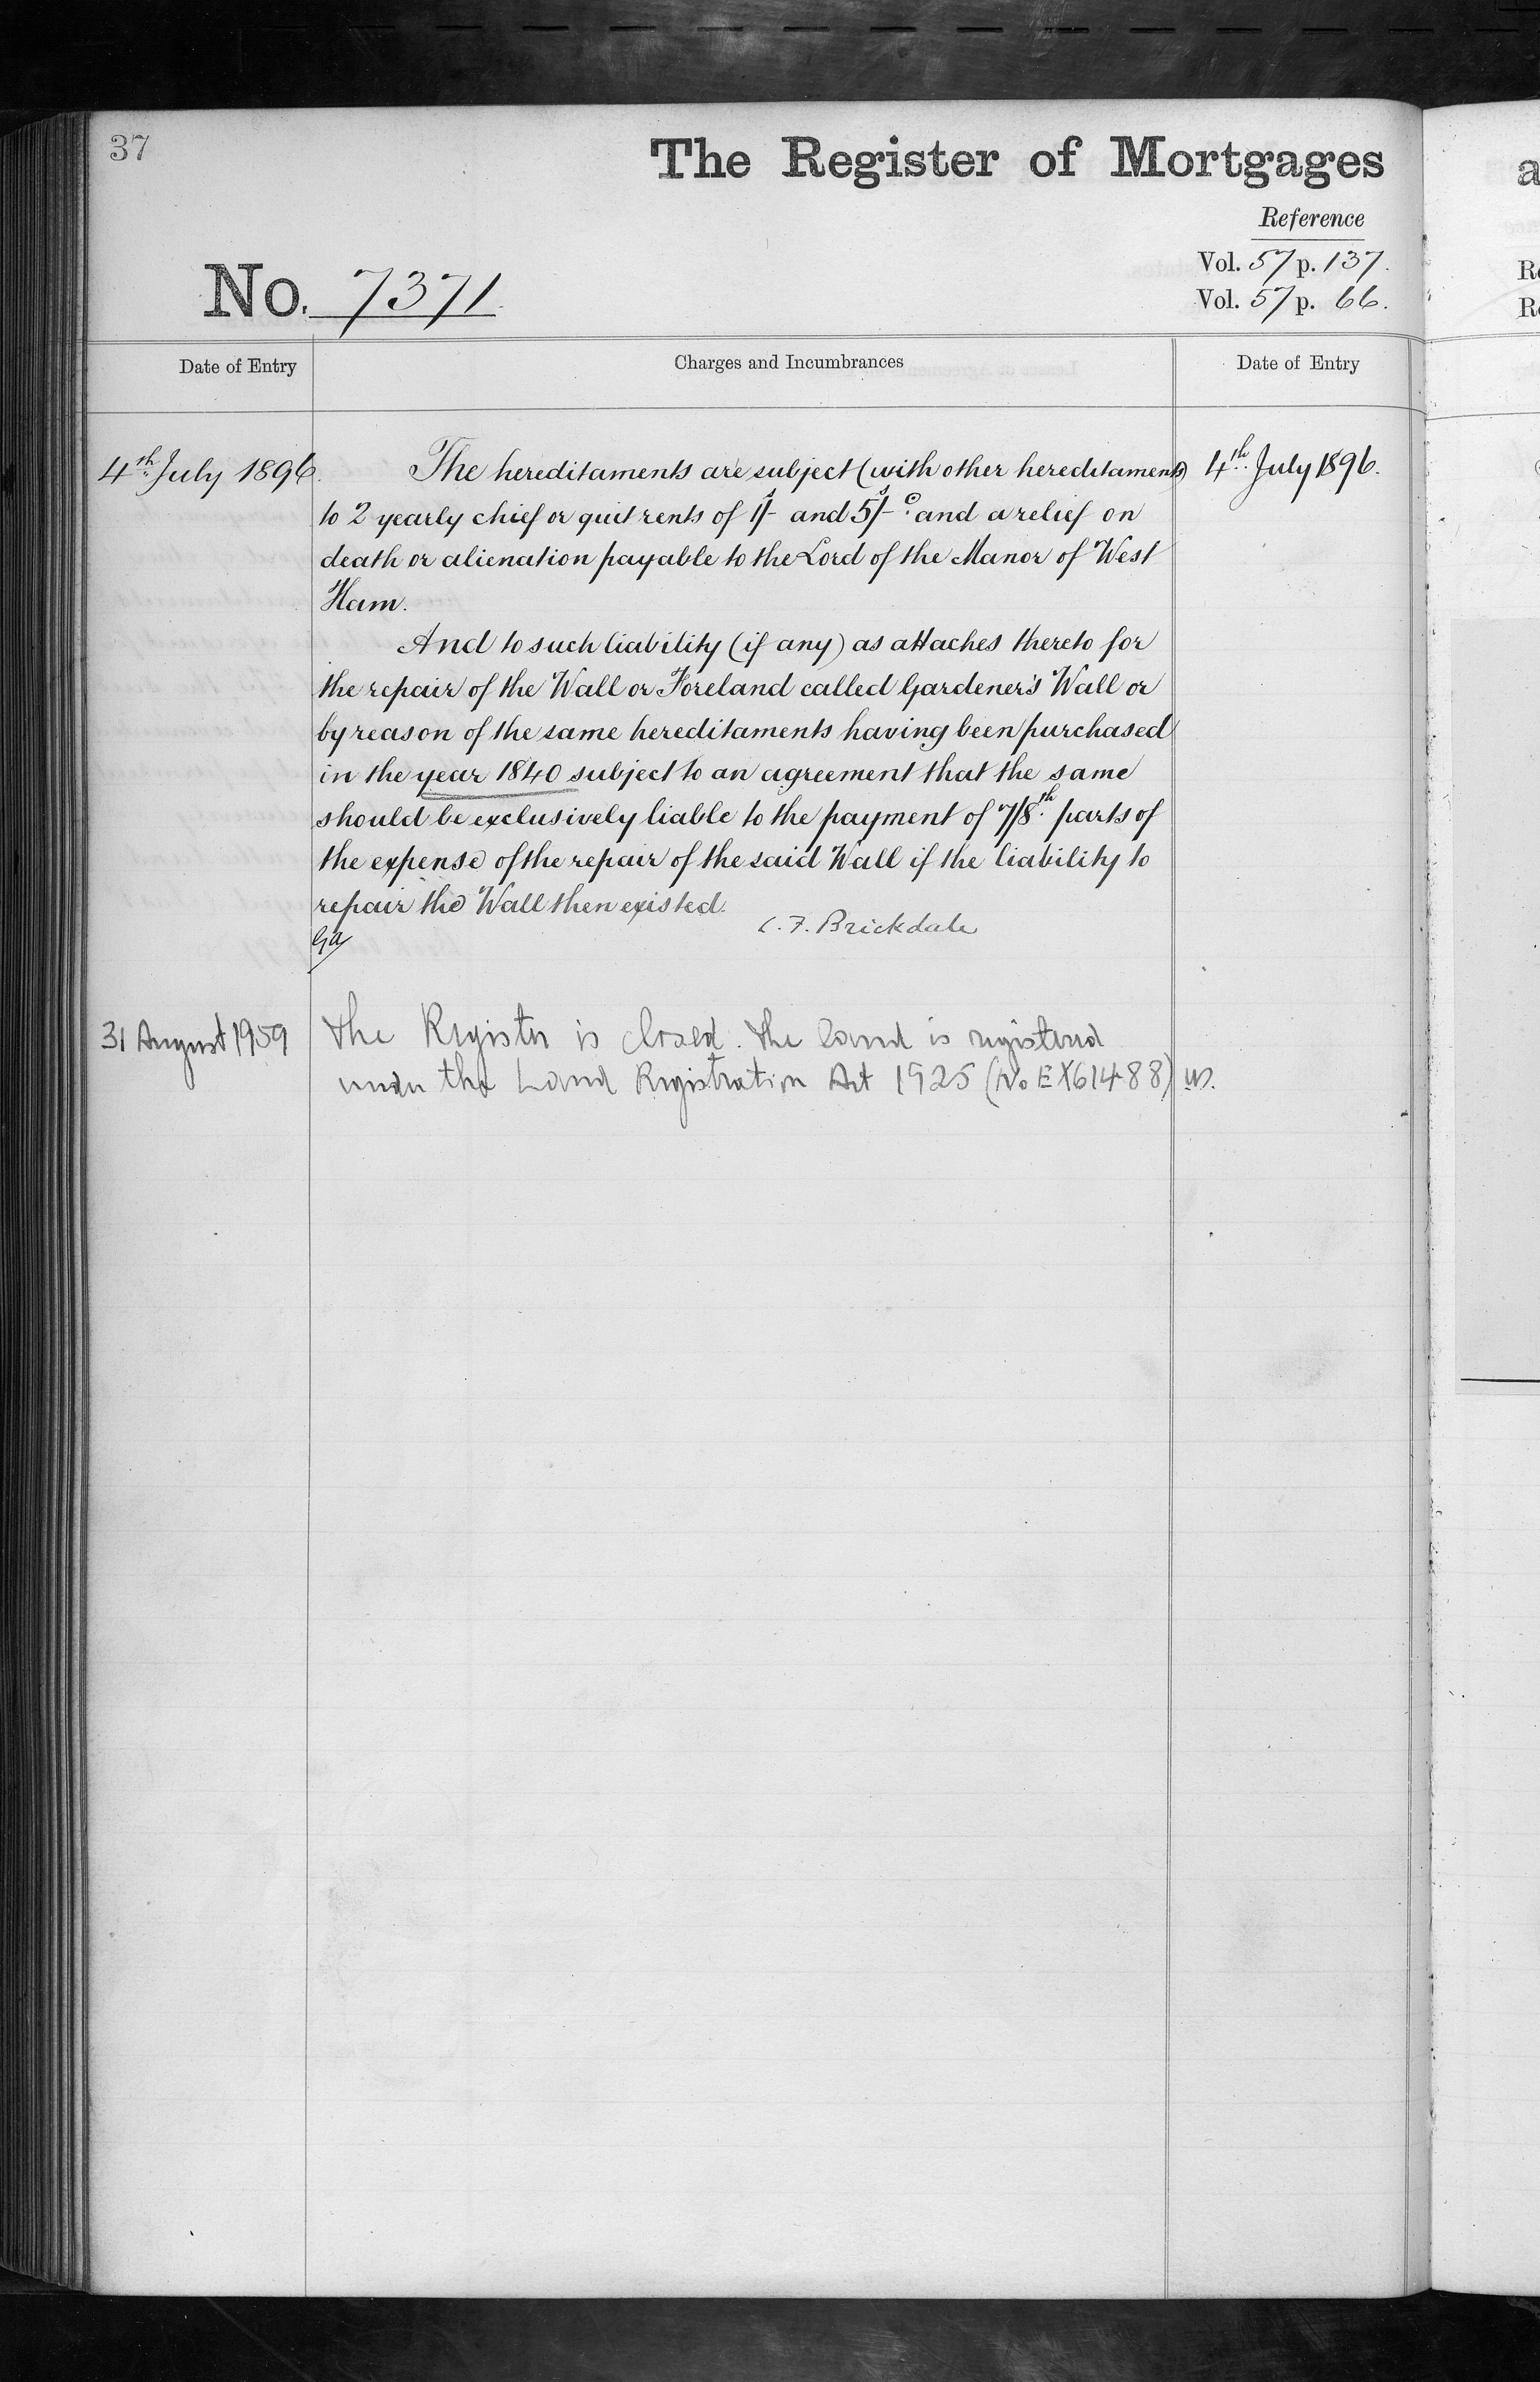 37
The Register of Mortgages
Reference
Vol. 57 p. 137.
Vol. 57 p. 66.
No. 7371.
Date of Entry
Charges and Incumbrances
Date of Entry
4th July 1896.
The hereditaments are subject (with other hereditaments)
4th July 1896.
to 2 yearly chief or quit rents of 1/- and 5/- and a relief on
death or alienation payable to the Lord of the Manor of West
Ham.
And to such liability (if any) as attaches thereto for
the repair of the Wall or Foreland called Gardener's Wall or
by reason of the same hereditaments having been purchased
in the year 1840 subject to an agreement that the same
should be exclusively liable to the payment of 7/8th parts of
the expense of the repair of the said Wall if the liability to
repair the Wall then existed.
C. F. Brickdale
31 August 1959
The Register is closed. The land is registered
under the Land Registration Act 1925 (No EX61488)
a